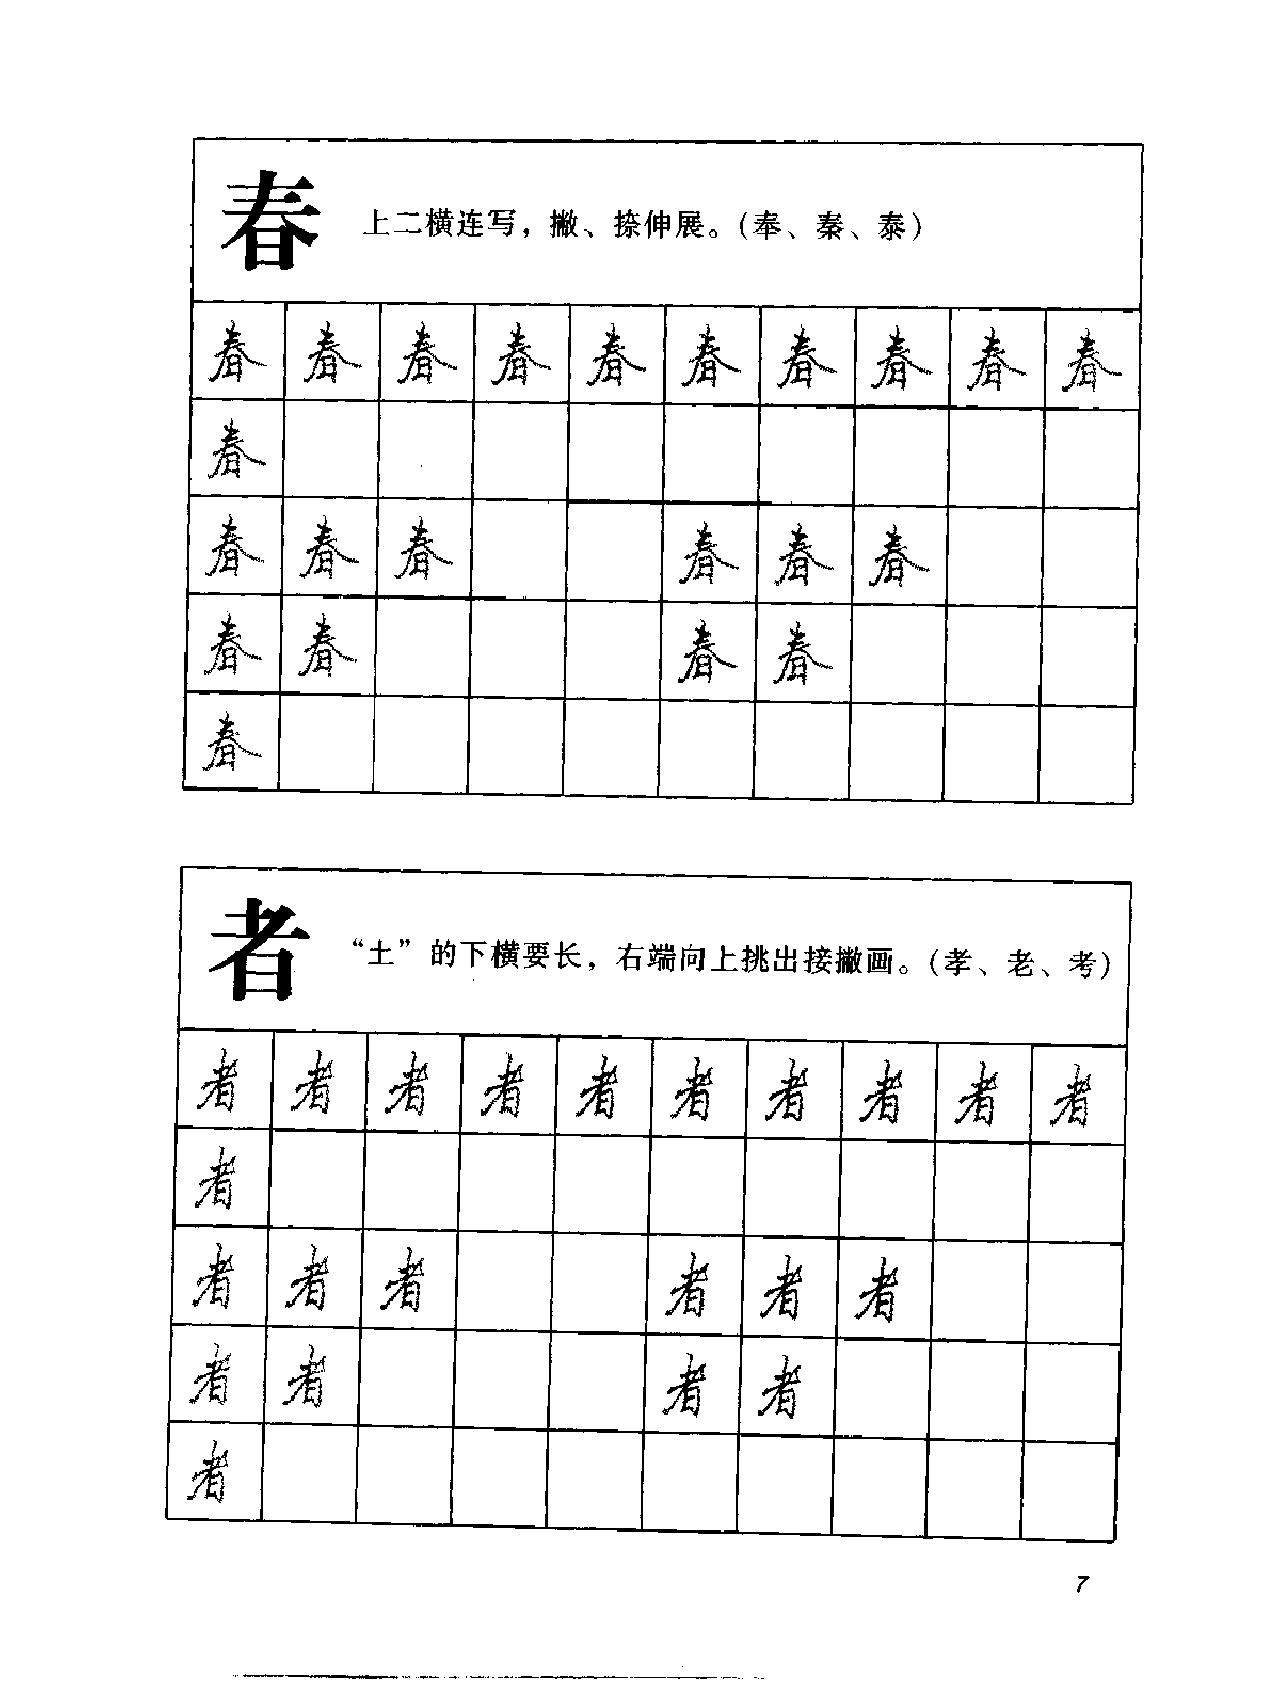 春 上二横连写，撇、捺伸展。(奉、秦、泰)
春 春 春 春 春 春 春 春 春 春
春
春 春 春 春 春 春
春 春 春 春
春
者 “土”的下横要长，右端向上挑出接撇画。(孝、老、考)
者 者 者 者 者 者 者 者 者 者
者
者 者 者 者 者 者
者 者 者 者
者
7